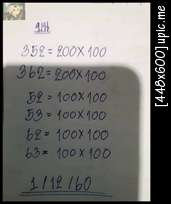 352 = 200 x 100
362 = 200 x 100
52 = 100 x 100
53 = 100 x 100
62 = 100 x 100
63 = 100 x 100
1 / 12 / 60
[448x600] upic.me